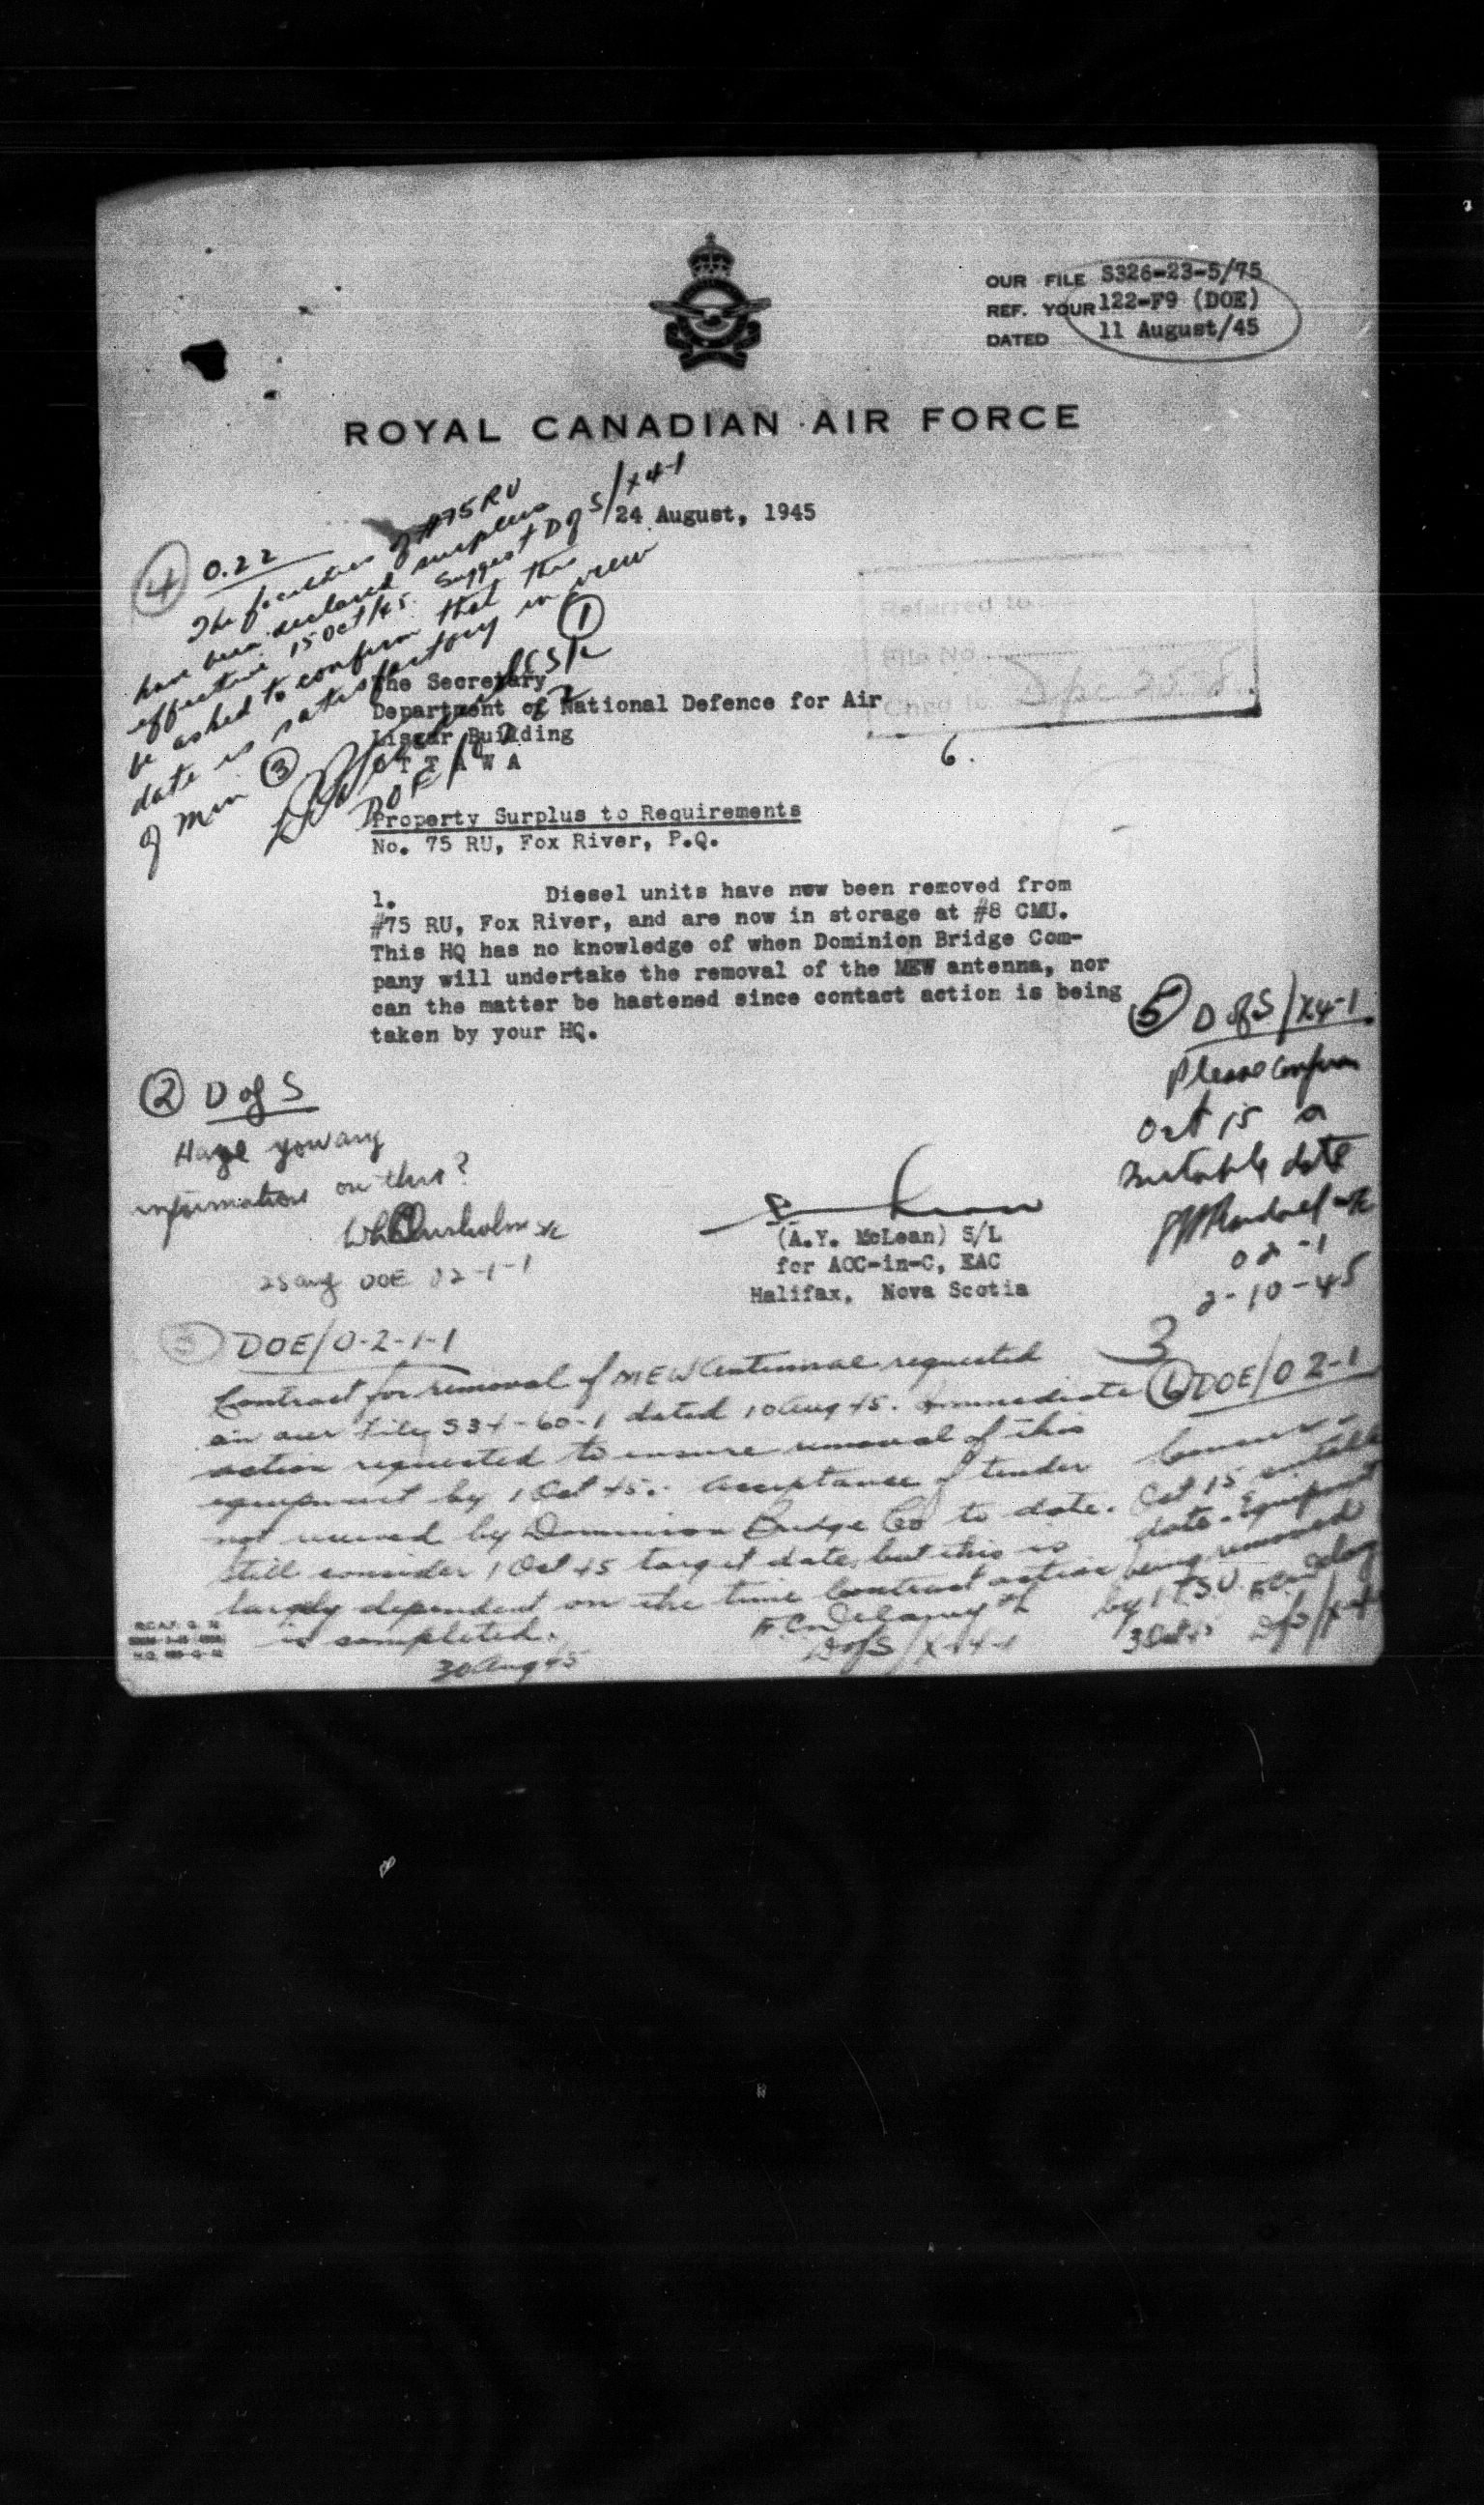 OUR FILE S326-23-5/75
REF. YOUR 122-F9 (DOE)
DATED 11 August/45
ROYAL CANADIAN AIR FORCE
24 August, 1945
④ 0.22
The facilities of #75RU
have been declared surplus
effective 15 Oct/45. Suggest D of S/X4-1
be asked to confirm that this
date is satisfactory in view
of Min ③
DOE/
①
Referred to
File No.
Chgd. to
6.
The Secretary
Department of National Defence for Air
Lisgar Building
O T T A W A
Property Surplus to Requirements
No. 75 RU, Fox River, P.Q.
1. Diesel units have now been removed from
#75 RU, Fox River, and are now in storage at #8 CMU.
This HQ has no knowledge of when Dominion Bridge Com-
pany will undertake the removal of the MEW antenna, nor
can the matter be hastened since contact action is being
taken by your HQ.
② D of S
Have you any
information on this?
WChisholm
25 Aug DOE 02-1-1
(A.Y. McLean) S/L
for AOC-in-C, EAC
Halifax, Nova Scotia
⑤ D of S/X4-1
Please confirm
Oct 15 a
suitable date
02-1
2-10-45
3
③ DOE/0-2-1-1
Contract for removal of MEW Antennae requested
on our file S34-60-1 dated 10 Aug 45. Immediate
action requested to ensure removal of this
equipment by 1 Oct 45. Acceptance of tender
not received by Dominion Bridge Co to date.
Still consider 1 Oct 45 target date, but this is
largely dependent on the time contract action
is completed.
30 Aug 45
F.C. Delaney
D of S/X-4-1
⑥ DOE/02-1
Oct 15 suitable
date. Equipment
being removed
by 1 TSU.
3 Oct 45
D of S/X-4